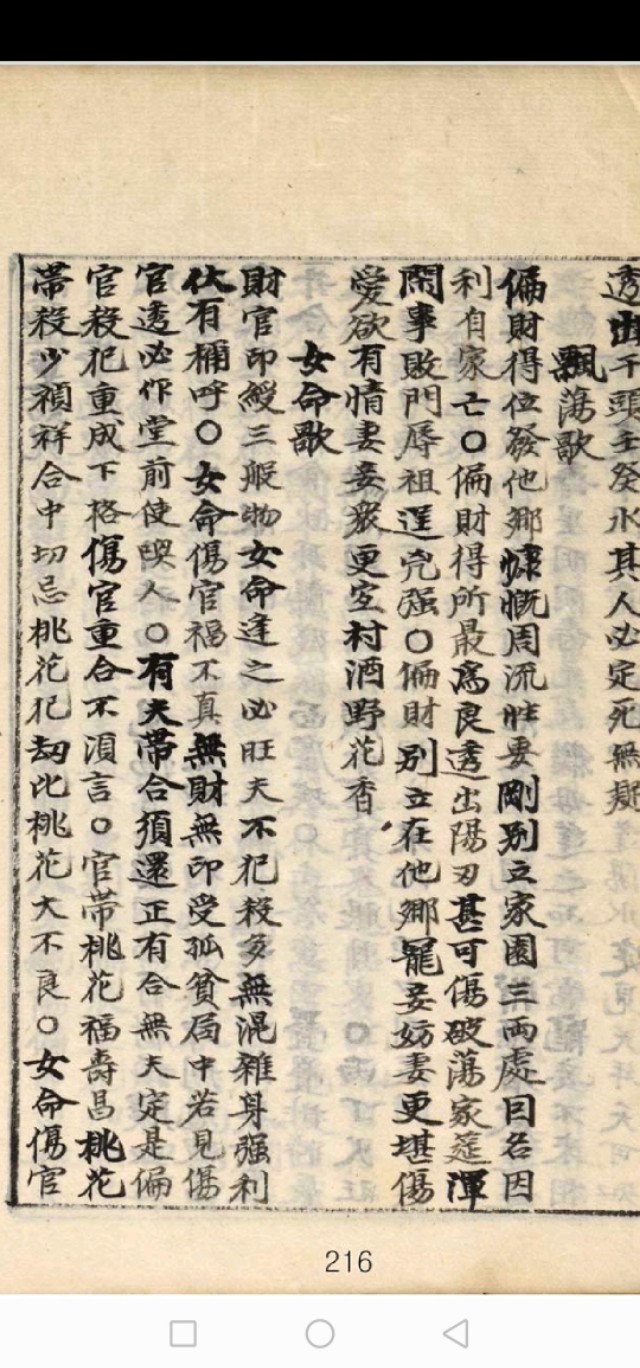 透出干頭壬癸水其人必定死無疑
飄蕩歌
偏財得位發他鄉慷慨周流性要剛別立家園三兩處因名因
利自家亡○偏財得所最為良透出陽刃甚可傷破蕩家筵渾
閑事敗門辱祖逞兇强○偏財別立在他鄉寵妾妨妻更堪傷
愛欲有情妻妾衆更宜村酒野花香
女命歌
財官印綬三般物女命逢之必旺夫不犯殺多無混雜身强利
伏有稱呼○女命傷官福不真無財無印受孤貧局中若見傷
官透必作堂前使喚人○有夫帶合須還正有合無夫定是偏
官殺犯重成下格傷官重合不須言○官帶桃花福壽昌桃花
帶殺少禎祥合中切忌桃花犯劫比桃花大不良○女命傷官
216